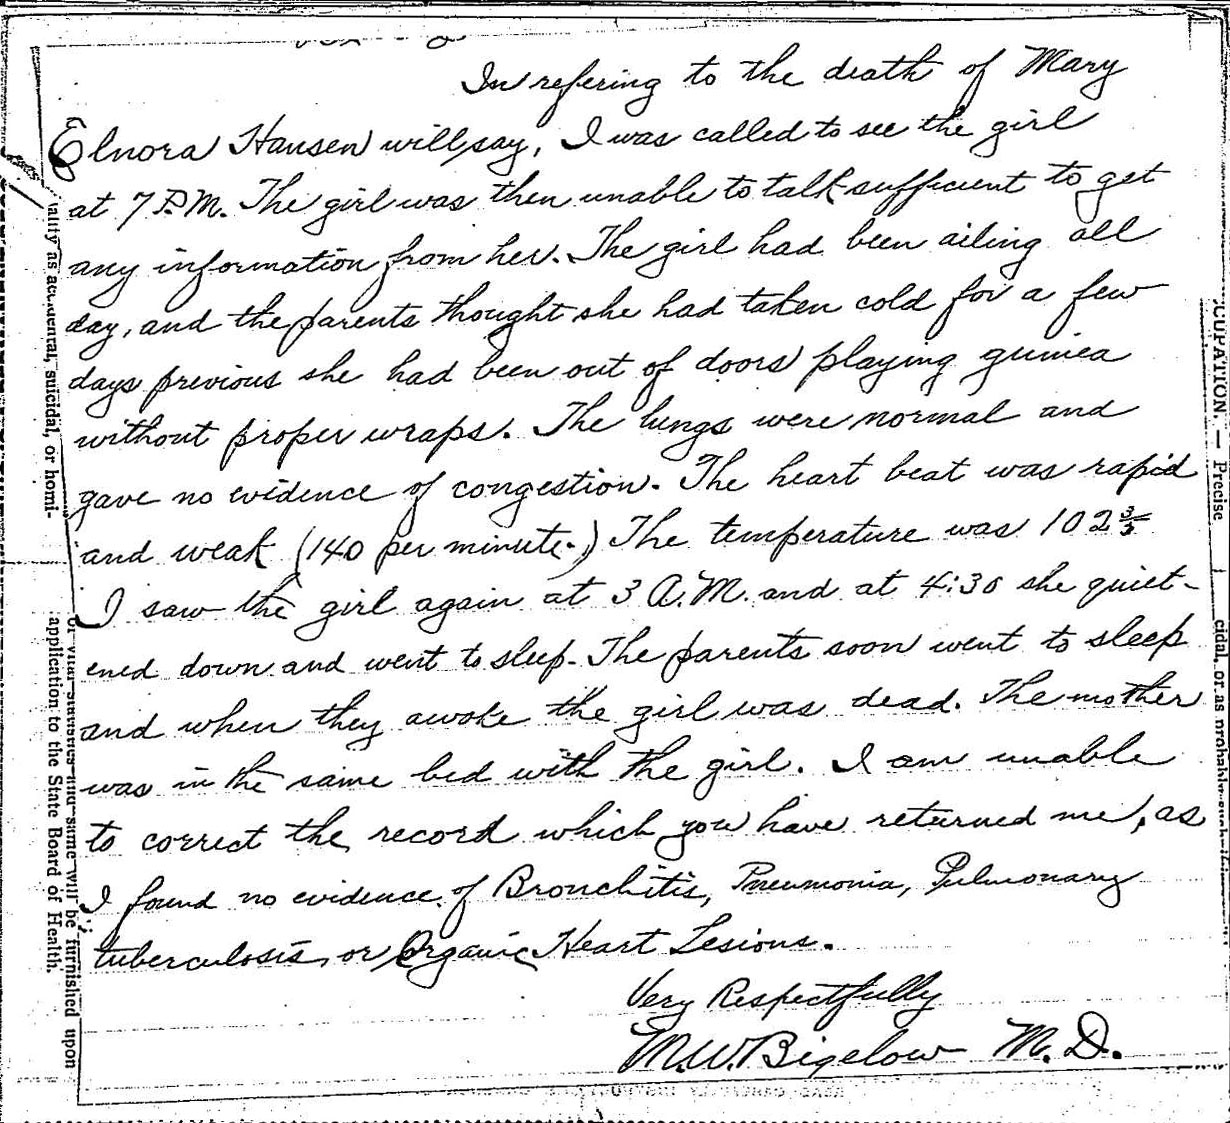 In refering to the death of Mary
Elnora Hansen will say, I was called to see the girl
at 7 P.M. The girl was then unable to talk sufficient to get
any information from her. The girl had been ailing all
day, and the parents thought she had taken cold for a few
days previous she had been out of doors playing guinea
without proper wraps. The lungs were normal and
gave no evidence of congestion. The heart beat was rapid
and weak (140 per minute.) The temperature was 102 3/5
I saw the girl again at 3 A.M. and at 4:30 she quiet-
ened down and went to sleep. The parents soon went to sleep
and when they awoke the girl was dead. The mother
was in the same bed with the girl. I am unable
to correct the record which you have returned me, as
I found no evidence of Bronchitis, Pneumonia, Pulmonary
tuberculosis, or Organic Heart Lesions.
Very Respectfully
M.W. Bigelow M.D.
as accidental, suicidal, or homi-
same will be furnished upon
application to the State Board of Health.
CUPATION.—Precise
cidal, or as